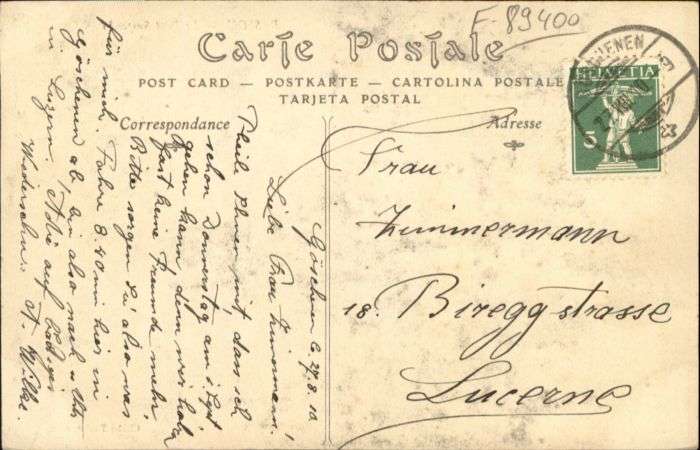 F 89400
Carte Postale
POST CARD — POSTKARTE — CARTOLINA POSTALE
TARJETA POSTAL
Correspondance
Adresse
HELVETIA
5
Göschenen 27.8.10
Liebe Frau Zimmermann!
Theile Ihnen mit, dass ich
schon Donnerstag am 1. Sept
gehen kann, denn wir haben
fast keine Fremde mehr
Bitte sorgen Sie also was
für mich. Fahre 8.40 hier in
Göschenen ab, bin also nach Uhr
in Luzern. Adie auf
Wiedersehn. A. Wilke.
Frau
Zimmermann
18. Bireggstrasse
Lucerne